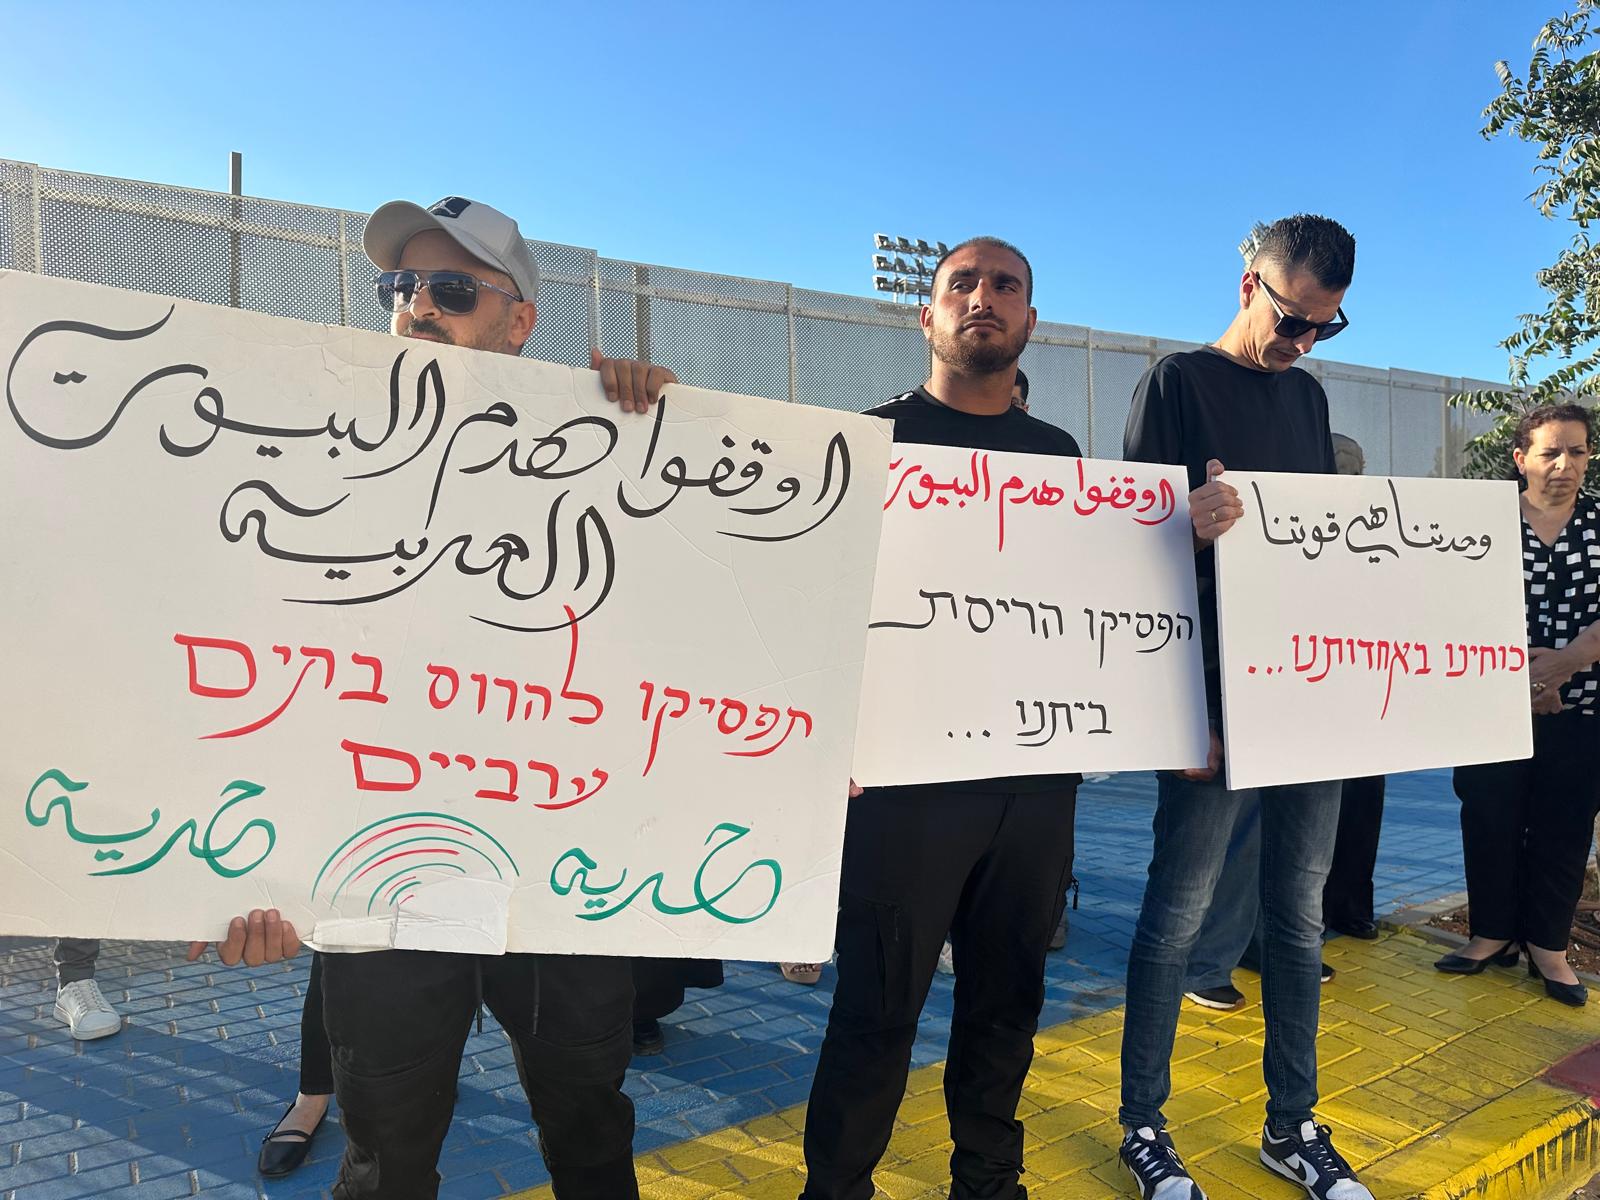 اوقفوا هدم البيوت
العربية
תפסיקו להרוס בתים
ערביים
اوقفوا هدم البيوت
הפסיקו הריסת
ביתנו ...
وحدتنا هي قوتنا
כוחינו באחדותנו...